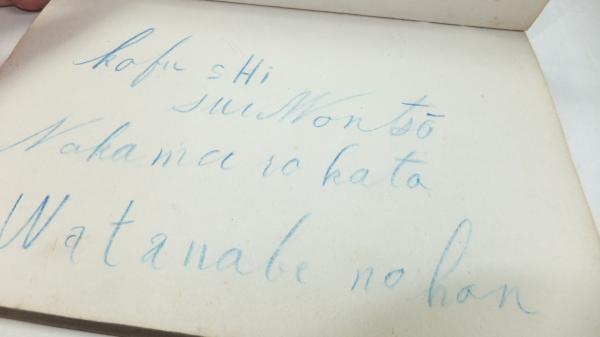 kofu sHi
sui Mon tsō
Nakamuro kata
Watanabe no hon